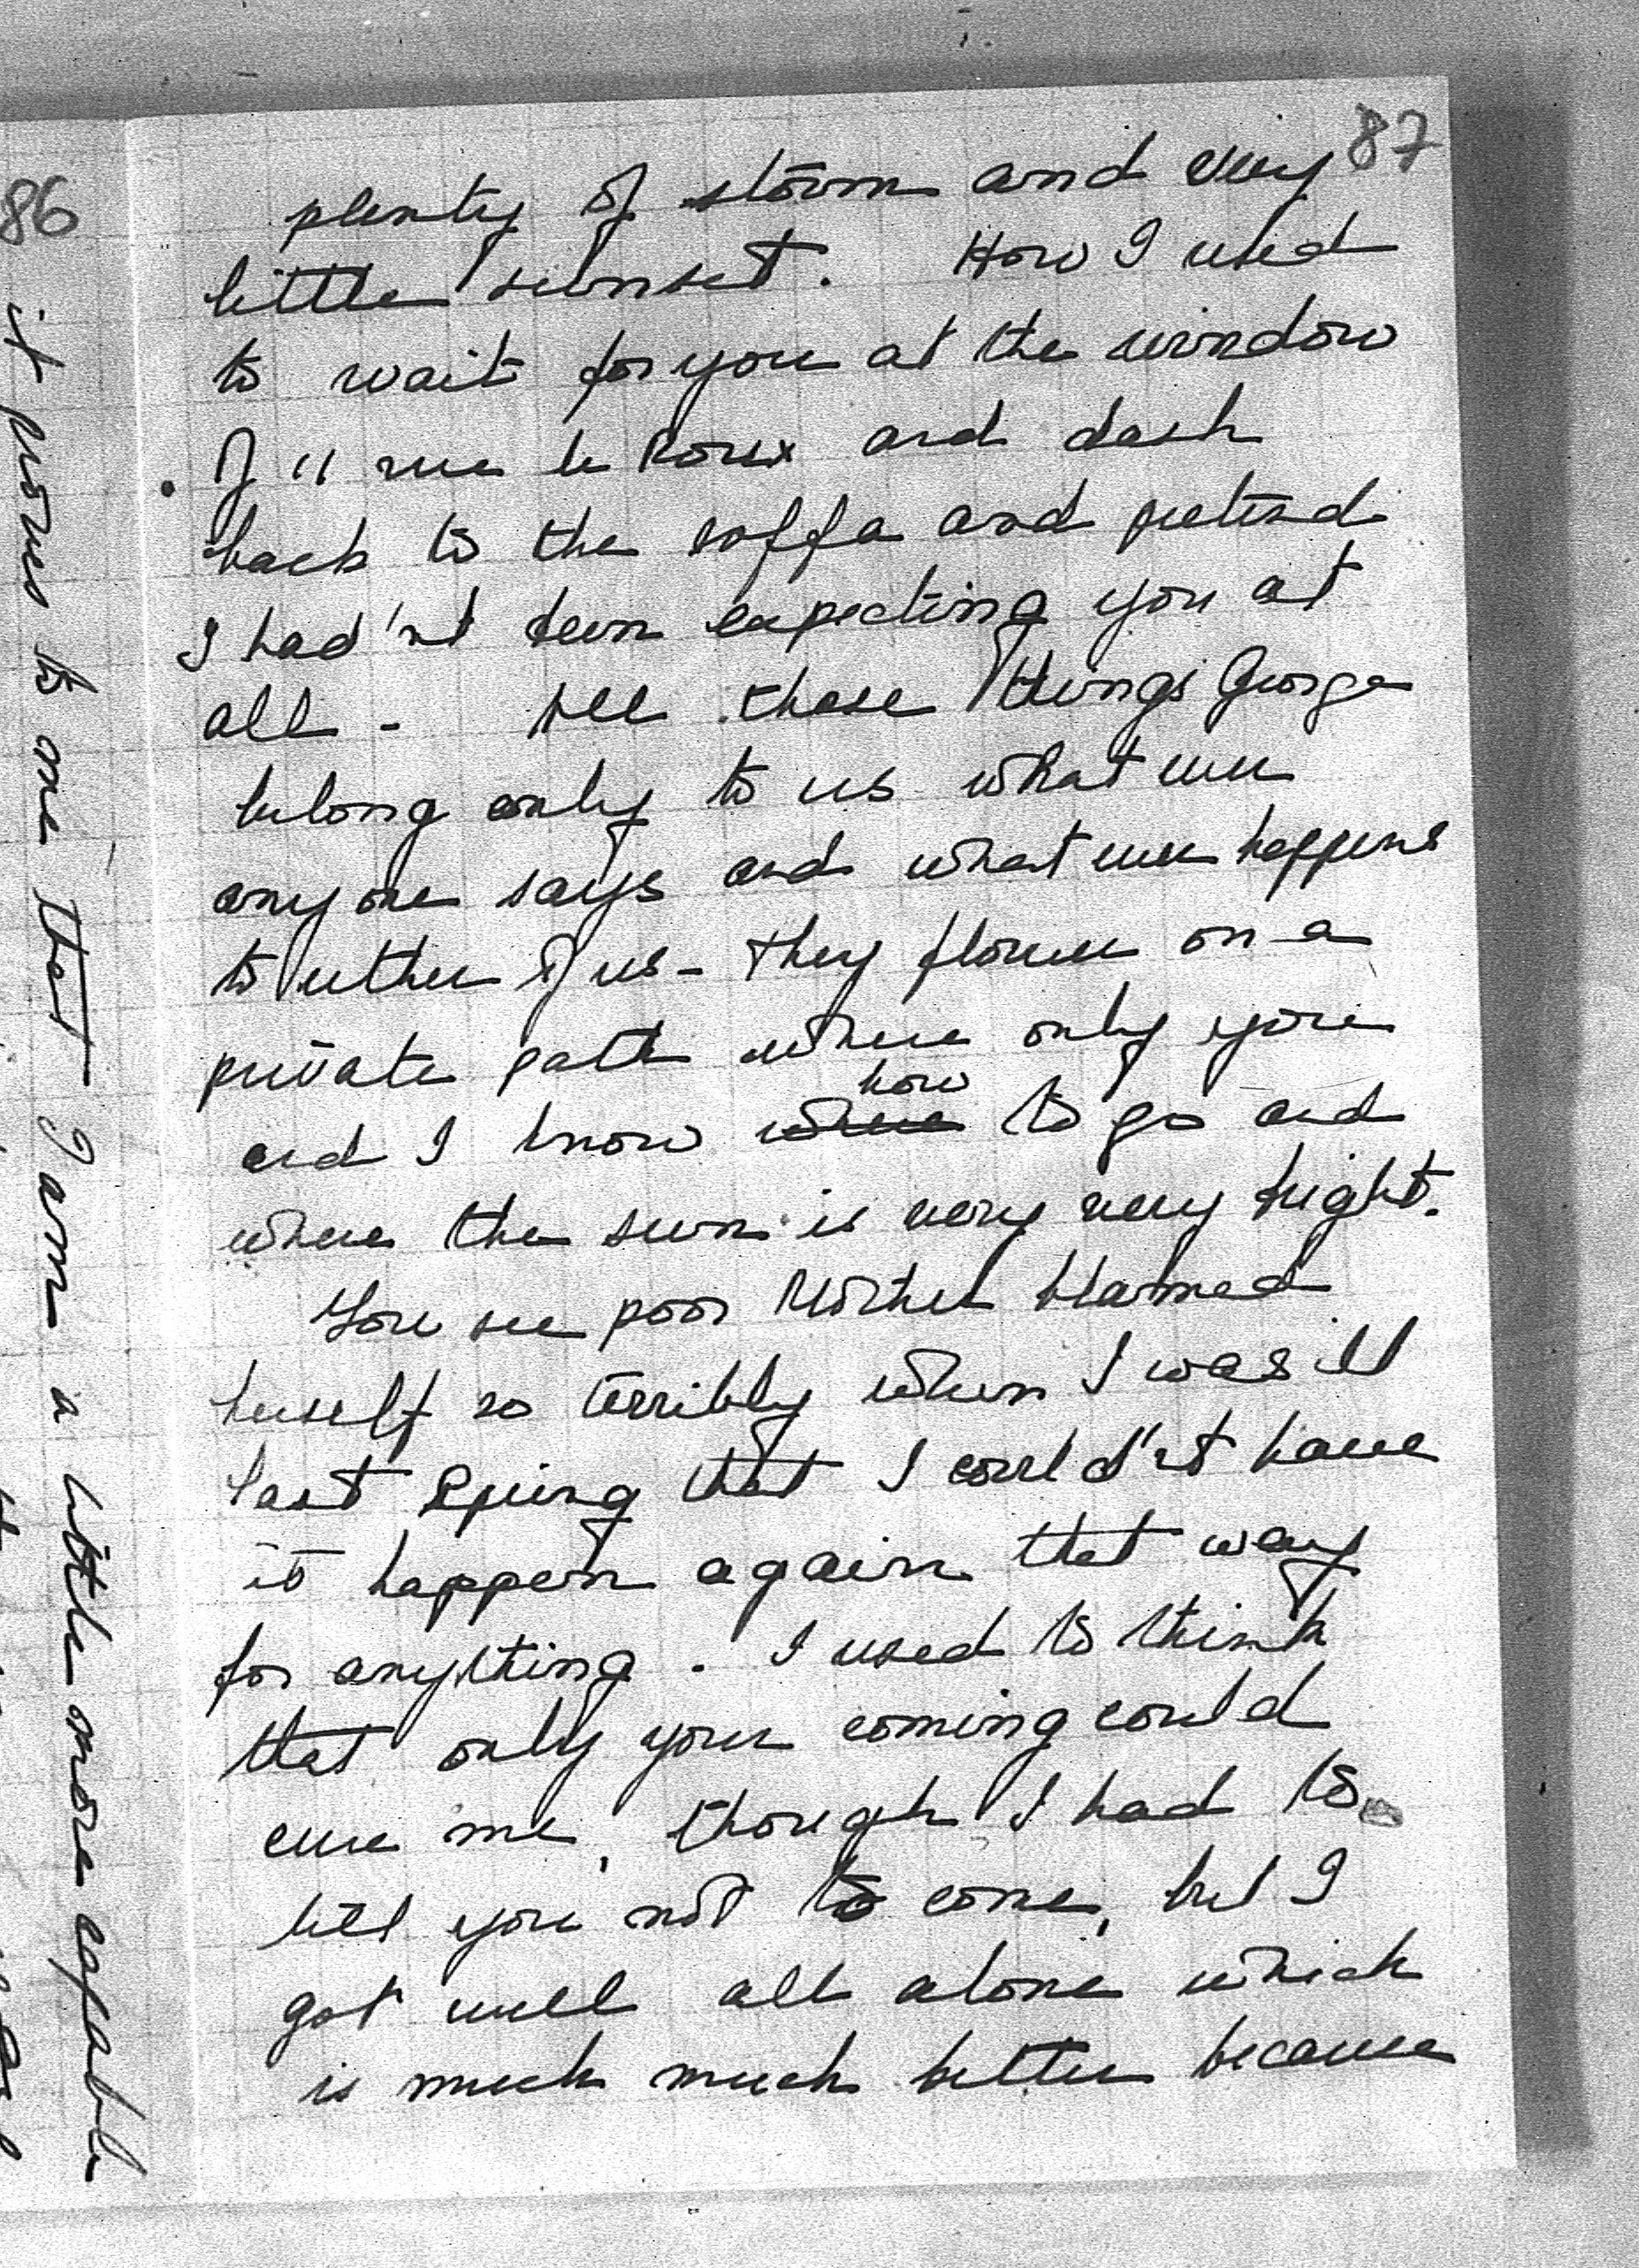 86
it proves to me that I am a little more capable
87
plenty of storm and very
little sunset. How I used
to wait for you at the window
of 11 rue le Roux and dash
back to the soffa and pretend
I had'nt been expecting you at
all - All these things George
belong only to us what ever
anyone says and what ever happens
to either of us - they flower on a
private path where only you
and I know ~~where~~ how to go and
where the sun is very very bright.
You see poor Mother blamed
herself so terribly when I was ill
last Spring that I could'nt have
it happen again that way
for anything. I used to think
that only your coming could
cure me, though I had to
tell you not to come, but I
got well all alone which
is much much better because